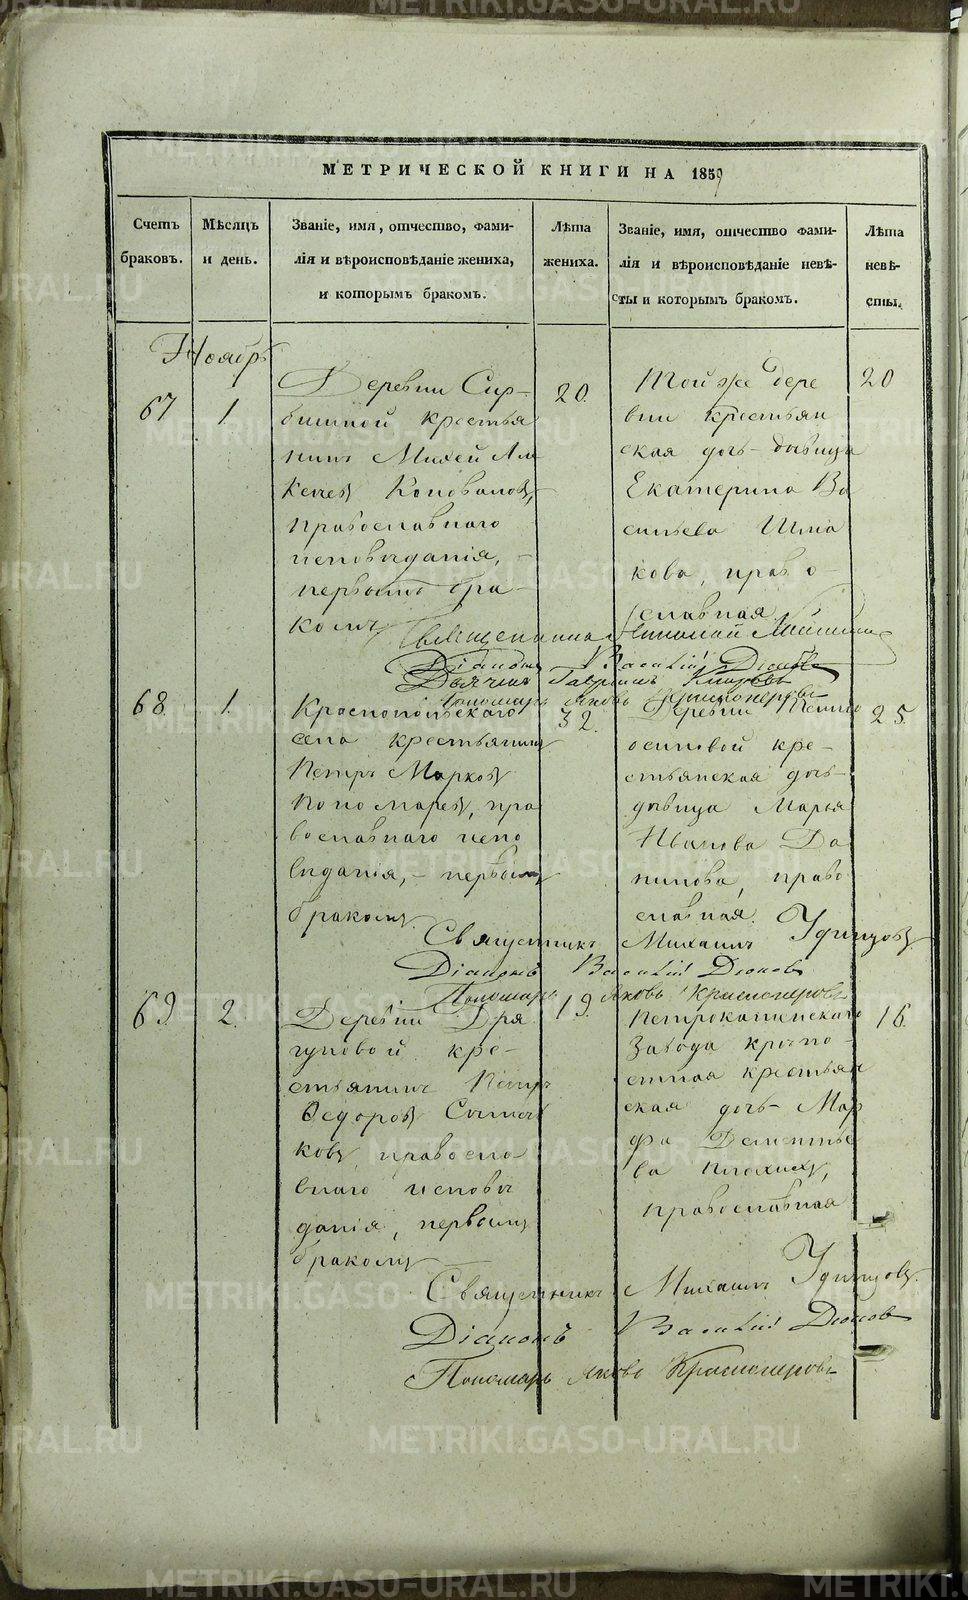 МЕТРИЧЕСКОЙ КНИГИ НА 1859
Счетъ браковъ.
Мѣсяцъ и день.
Званіе, имя, отчество, фами-
лія и вѣроисповѣданіе жениха,
и которымъ бракомъ.
Лѣта жениха.
Званіе, имя, отчество фами-
лія и вѣроисповѣданіе невѣ-
сты и которымъ бракомъ.
Лѣта
невѣ-
сты.
Ноябрь
67
1.
Деревни
крестья
нинъ Михей
Коновановъ,
православнаго
исповѣданія, -
первымъ бра-
комъ
20.
Той же дере
вни крестьян
ская дочь - дѣвица
Екатерина Ва
сильева Шма
кова, право-
славная
20
Священникъ Николай
Діаконъ Василій Діоновъ
Дьячекъ Гавриилъ
Пономарь Яковъ Красноперовъ
68.
1.
Краснопольскаго
села крестьянинъ
Петръ Марковъ
Пономаревъ, пра
вославнаго испо
вѣданія, - первымъ
бракомъ
32.
Деревни
осиновой кре-
стьянская дочь-
дѣвица Марья
Иванова Да
нилова, право
славная.
25.
Священникъ Михаилъ Удинцовъ
Діаконъ Василій Діоновъ
Пономарь Яковъ Красноперовъ
69.
2.
Деревни Дря
гуновой кре-
стьянинъ Петръ
Ѳедоровъ Сычи
ковъ, правосла
внаго исповѣ
данія, первымъ
бракомъ
19.
Петрокаменскаго
Завода крѣпо-
стная крестьян
ская дочь- Мар
фа Дементье
ва
православная
16.
Священникъ Михаилъ Удинцовъ.
Діаконъ Василій Діоновъ
Пономарь Яковъ Красноперовъ
METRIKI.GASO-URAL.RU